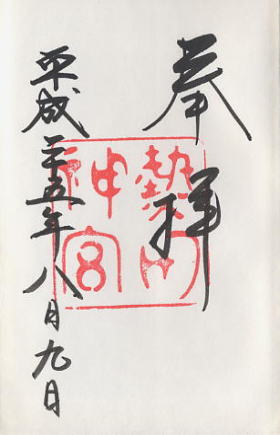 奉拝
熱田神宮
平成二十五年八月九日